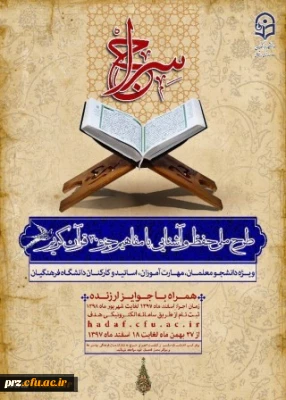 سراج
طرح ملی حفظ و آشنایی با مفاهیم جزء ۳۰ قرآن کریم
ویژه دانشجو معلمان، مهارت آموزان، اساتید و کارکنان دانشگاه فرهنگیان
همراه با جوایز ارزنده
زمان اجرا: اسفند ماه ۱۳۹۷ لغایت شهریور ماه ۱۳۹۸
ثبت نام از طریق سامانه الکترونیکی هدف
hadaf.cfu.ac.ir
از ۲۷ بهمن ماه لغایت ۱۸ اسفند ماه ۱۳۹۷
prz.cfu.ac.ir